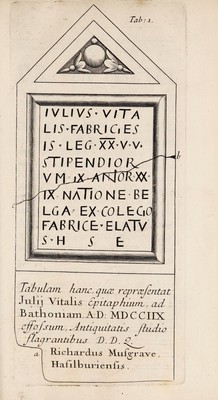 Tab: 1.
IVLIVS · VITA
LIS · FABRICIES
IS · LEG · XX · V · V ·
STIPENDIOR
VM IX ANOR XX
IX NATIONE · BE
LGA · EX · COLEGO
FABRICE · ELATVS
S · H S E
b
Tabulam hanc, quæ repræsentat
Julij Vitalis Epitaphium, ad
Bathoniam A.D: MDCCIIX
effossum, Antiquitatis studio
flagrantibus D. D. Q.
a Richardus Musgrave,
Hasilburiensis.